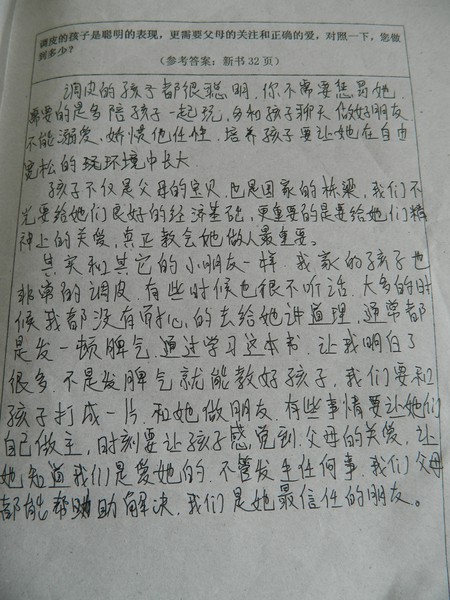 调皮的孩子是聪明的表现，更需要父母的关注和正确的爱，对照一下，您做
到多少？
（参考答案：新书32页）
调皮的孩子都很聪明．你不需要惩罚她．
需要的是多陪孩子一起玩，多和孩子聊天做好朋友．
不能溺爱、娇惯他任性．培养孩子要让她在自由
宽松的玩环境中长大．
孩子不仅是父母的宝贝．也是国家的栋梁．我们不
光要给她们良好的经济基础，更重要的是要给她们精
神上的关爱，真正教会她做人最重要。
其实和其它的小朋友一样．我家的孩子也
非常的调皮．有些时候也很不听话．大多的时
候我都没有耐心的去给她讲道理．通常都
是发一顿脾气．通过学习这本书．让我明白了
很多．不是发脾气就能教好孩子．我们要和
孩子打成一片．和她做朋友．有些事情要让她们
自己做主，时刻要让孩子感觉到父母的关爱．让
她知道我们是爱她的．不管发生任何事．我们父母
都能帮助助解决．我们是她最信任的朋友。